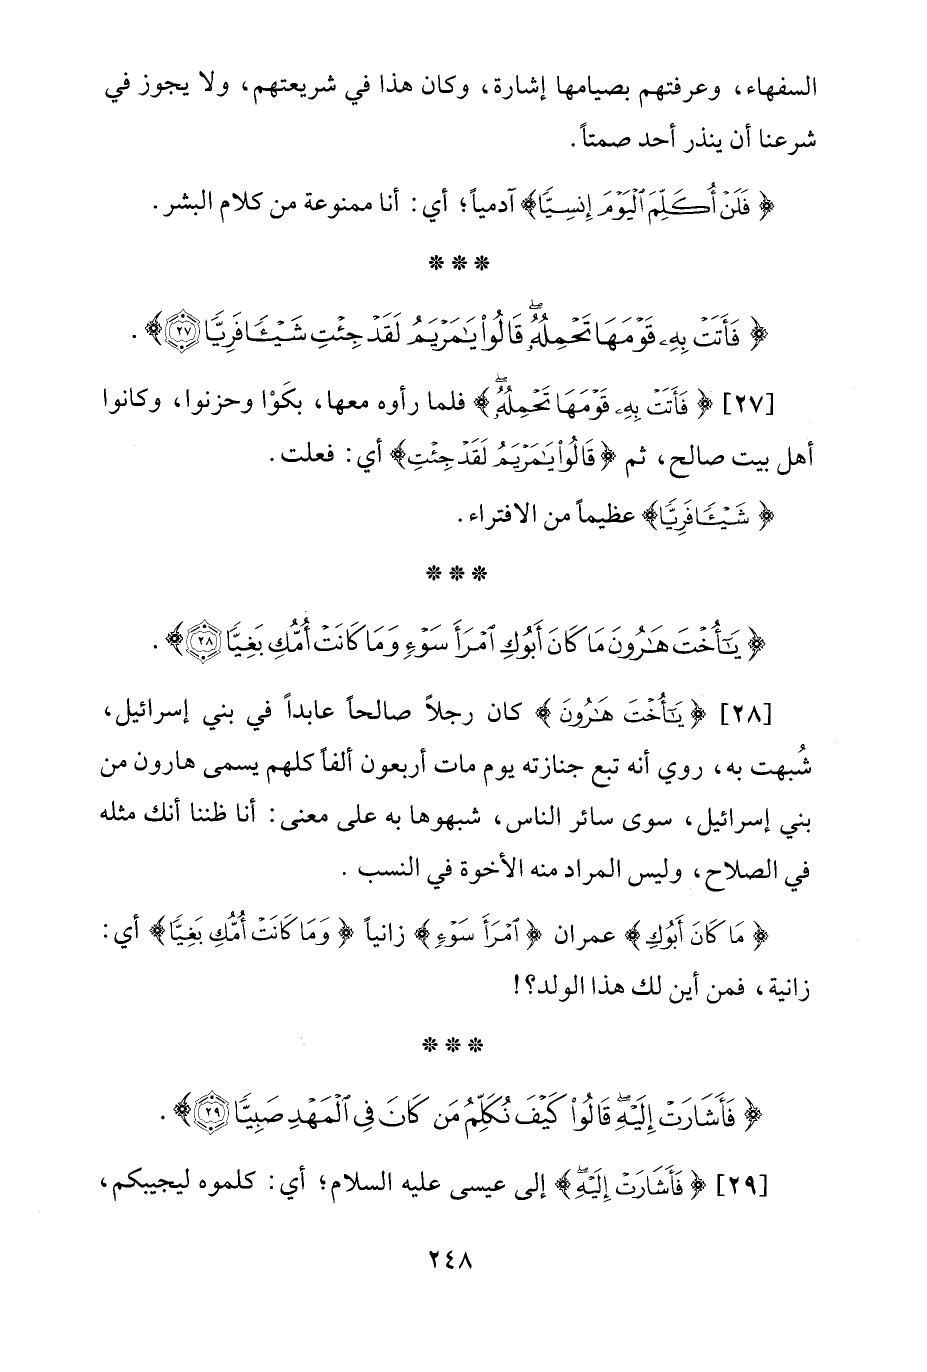 السفهاء، وعرفتهم بصيامها إشارة، وكان هذا في شريعتهم، ولا يجوز في
شرعنا أن ينذر أحد صمتاً.
﴿فَلَنْ أُكَلِّمَ الْيَوْمَ إِنسِيًّا﴾ آدمياً؛ أي: أنا ممنوعة من كلام البشر.
***
﴿فَأَتَتْ بِهِۦ قَوْمَهَا تَحْمِلُهُۥۖ قَالُوا۟ يَٰمَرْيَمُ لَقَدْ جِئْتِ شَيْـًٔا فَرِيًّا ٢٧﴾.
[٢٧] ﴿فَأَتَتْ بِهِۦ قَوْمَهَا تَحْمِلُهُۥۖ﴾ فلما رأوه معها، بكَوْا وحزنوا، وكانوا
أهل بيت صالح، ثم ﴿قَالُوا۟ يَٰمَرْيَمُ لَقَدْ جِئْتِ﴾ أي: فعلت.
﴿شَيْـًٔا فَرِيًّا﴾ عظيماً من الافتراء.
***
﴿يَٰٓأُخْتَ هَٰرُونَ مَا كَانَ أَبُوكِ ٱمْرَأَ سَوْءٍ وَمَا كَانَتْ أُمُّكِ بَغِيًّا ٢٨﴾.
[٢٨] ﴿يَٰٓأُخْتَ هَٰرُونَ﴾ كان رجلاً صالحاً عابداً في بني إسرائيل،
شُبهت به، روي أنه تبع جنازته يوم مات أربعون ألفاً كلهم يسمى هارون من
بني إسرائيل، سوى سائر الناس، شبهوها به على معنى: أنا ظننا أنك مثله
في الصلاح، وليس المراد منه الأخوة في النسب.
﴿مَا كَانَ أَبُوكِ﴾ عمران ﴿ٱمْرَأَ سَوْءٍ﴾ زانياً ﴿وَمَا كَانَتْ أُمُّكِ بَغِيًّا﴾ أي:
زانية، فمن أين لك هذا الولد؟!
***
﴿فَأَشَارَتْ إِلَيْهِۖ قَالُوا۟ كَيْفَ نُكَلِّمُ مَن كَانَ فِى ٱلْمَهْدِ صَبِيًّا ٢٩﴾.
[٢٩] ﴿فَأَشَارَتْ إِلَيْهِۖ﴾ إلى عيسى عليه السلام؛ أي: كلموه ليجيبكم،
٢٤٨